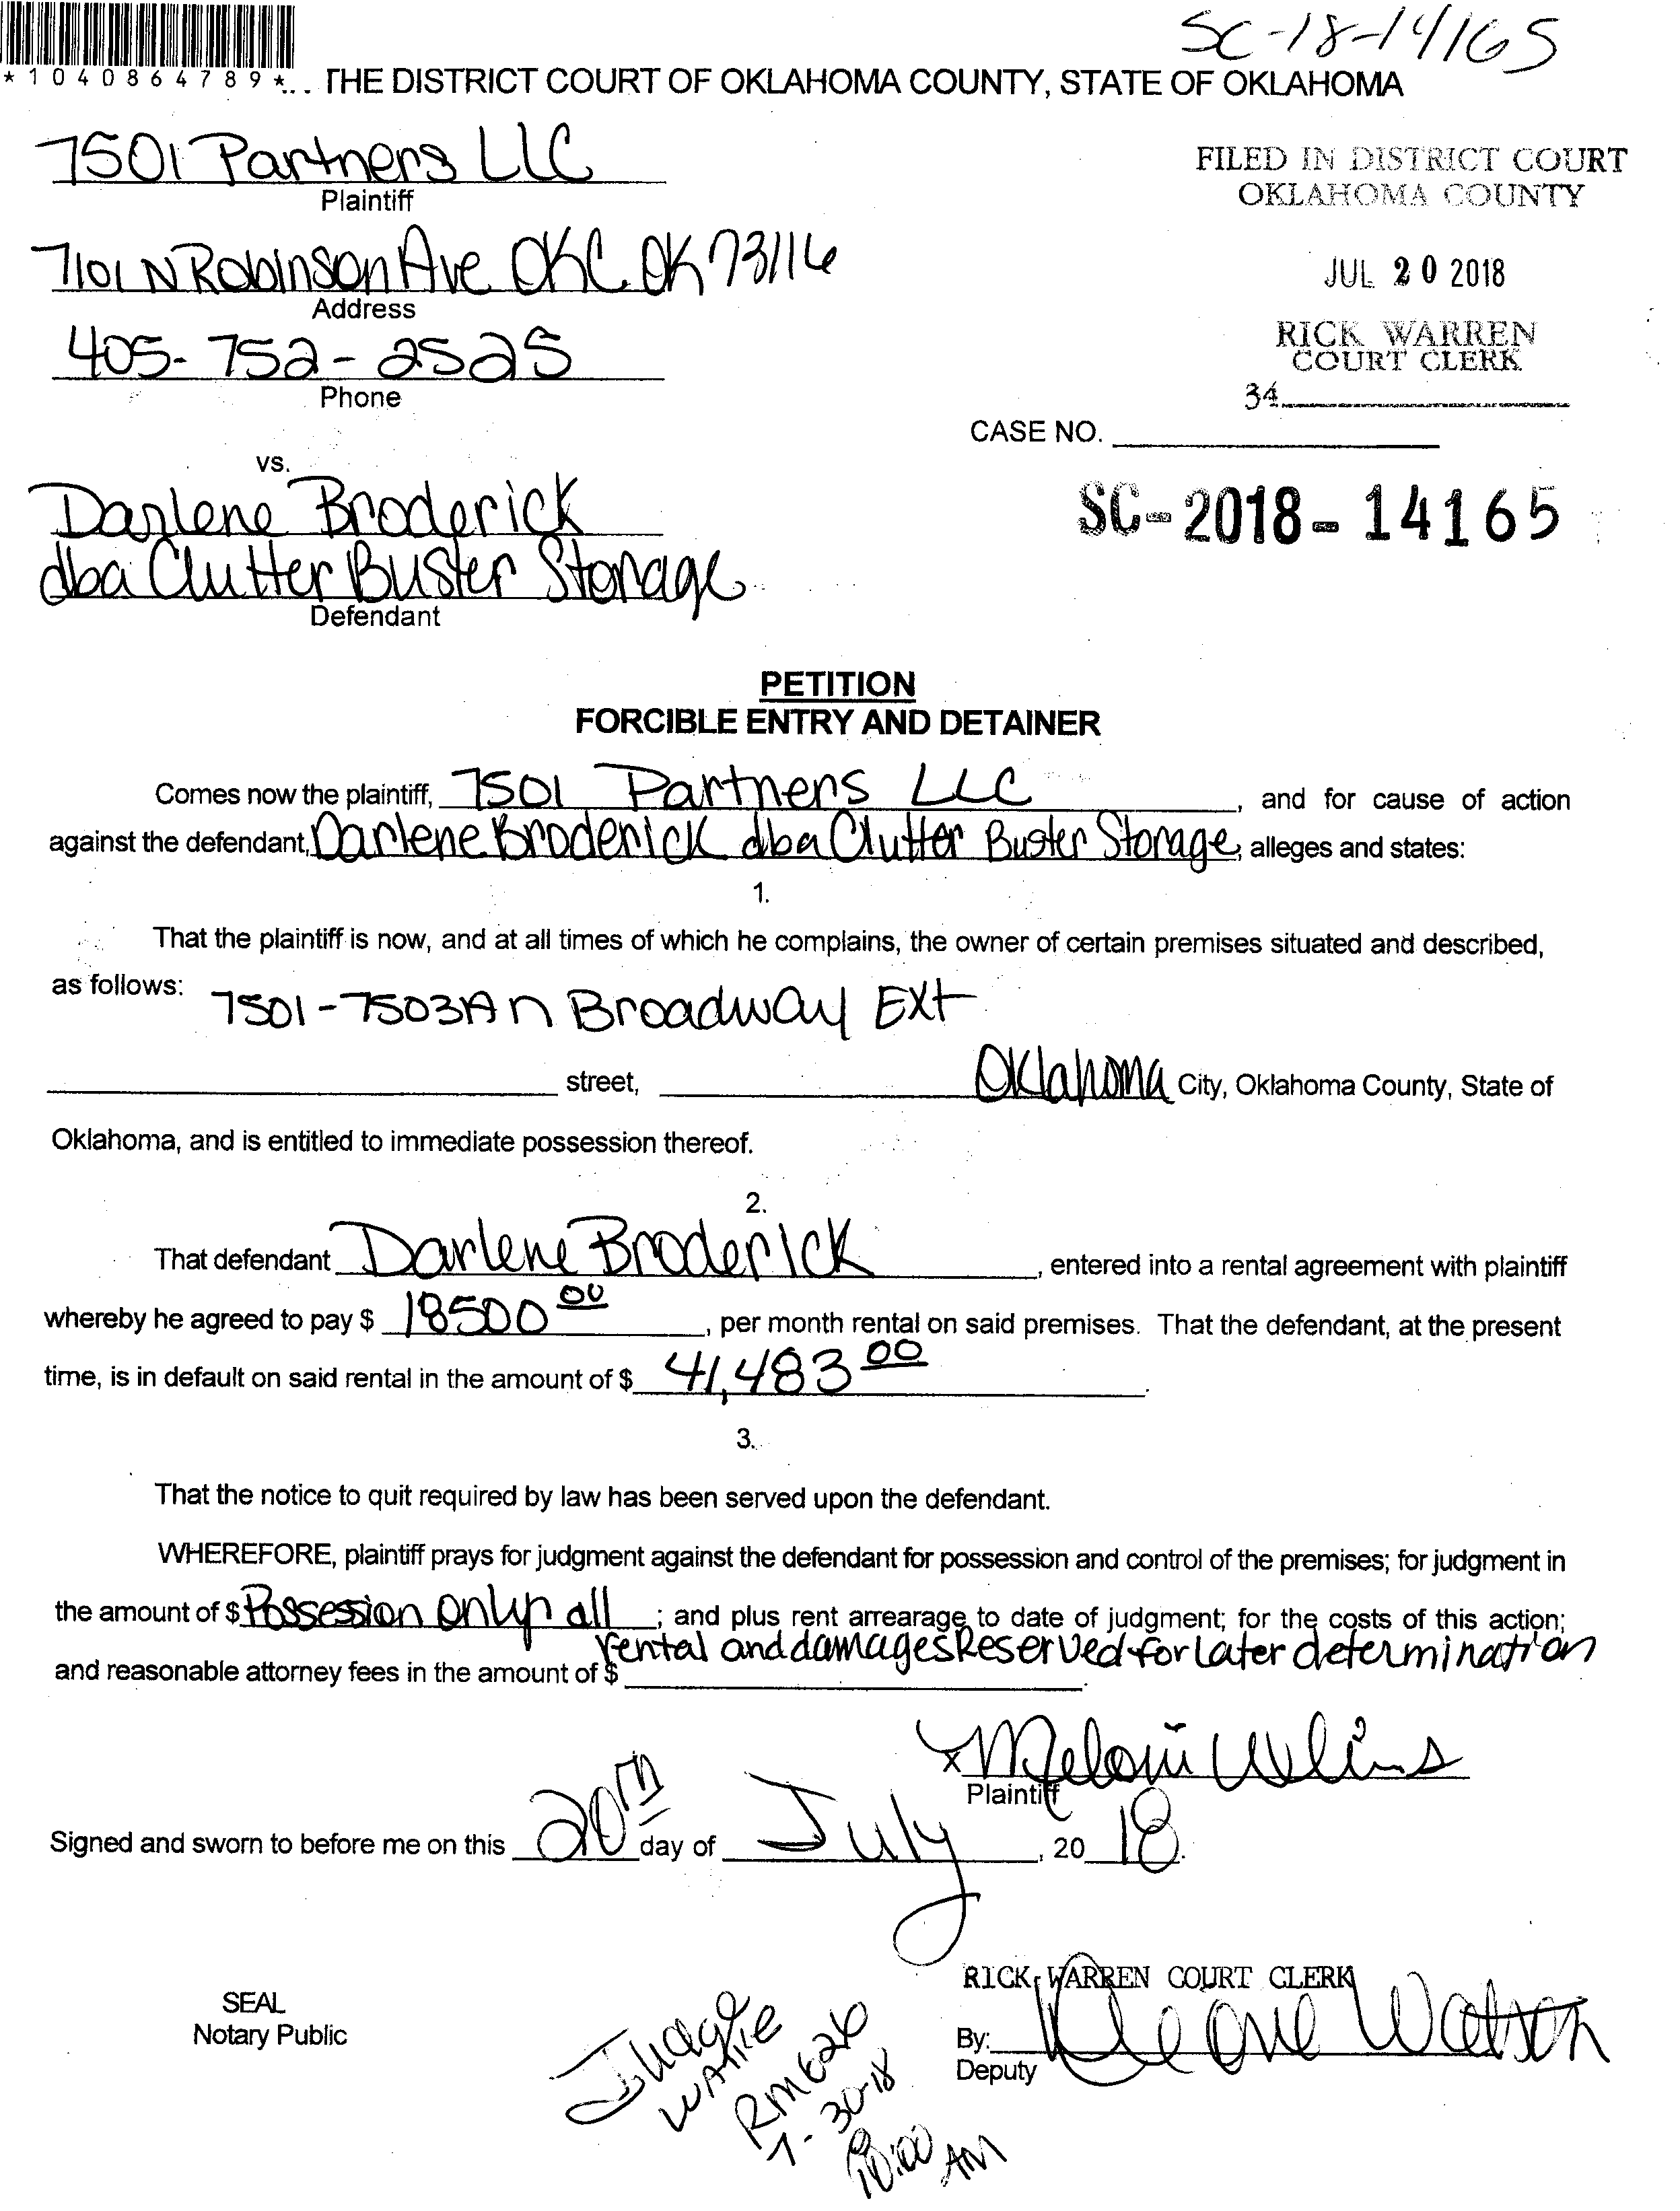 SC-18-14165
*1040864789*
THE DISTRICT COURT OF OKLAHOMA COUNTY, STATE OF OKLAHOMA
7501 Partners LLC
Plaintiff
FILED IN DISTRICT COURT
OKLAHOMA COUNTY
7101 N Robinson Ave OKC OK 73116
Address
JUL 20 2018
405-752-2525
Phone
RICK WARREN
COURT CLERK
34
CASE NO.
vs.
SC-2018-14165
Darlene Broderick
dba Clutter Buster Storage
Defendant
PETITION
FORCIBLE ENTRY AND DETAINER
Comes now the plaintiff, 7501 Partners LLC, and for cause of action
against the defendant, Darlene Broderick dba Clutter Buster Storage, alleges and states:
1.
That the plaintiff is now, and at all times of which he complains, the owner of certain premises situated and described,
as follows: 7501-7503A n Broadway Ext
street, Oklahoma City, Oklahoma County, State of
Oklahoma, and is entitled to immediate possession thereof.
2.
That defendant Darlene Broderick, entered into a rental agreement with plaintiff
whereby he agreed to pay $ 18500 00, per month rental on said premises. That the defendant, at the present
time, is in default on said rental in the amount of $ 41,483 00.
3.
That the notice to quit required by law has been served upon the defendant.
WHEREFORE, plaintiff prays for judgment against the defendant for possession and control of the premises; for judgment in
the amount of $ Possession only all; and plus rent arrearage to date of judgment; for the costs of this action;
rental and damages Reserved for Later determination
and reasonable attorney fees in the amount of $.
x
Plaintiff
Signed and sworn to before me on this 20th day of July, 2018.
SEAL
Notary Public
RICK WARREN COURT CLERK
By:
Deputy
Judge
Rm 626
7-30-18
10:00 AM